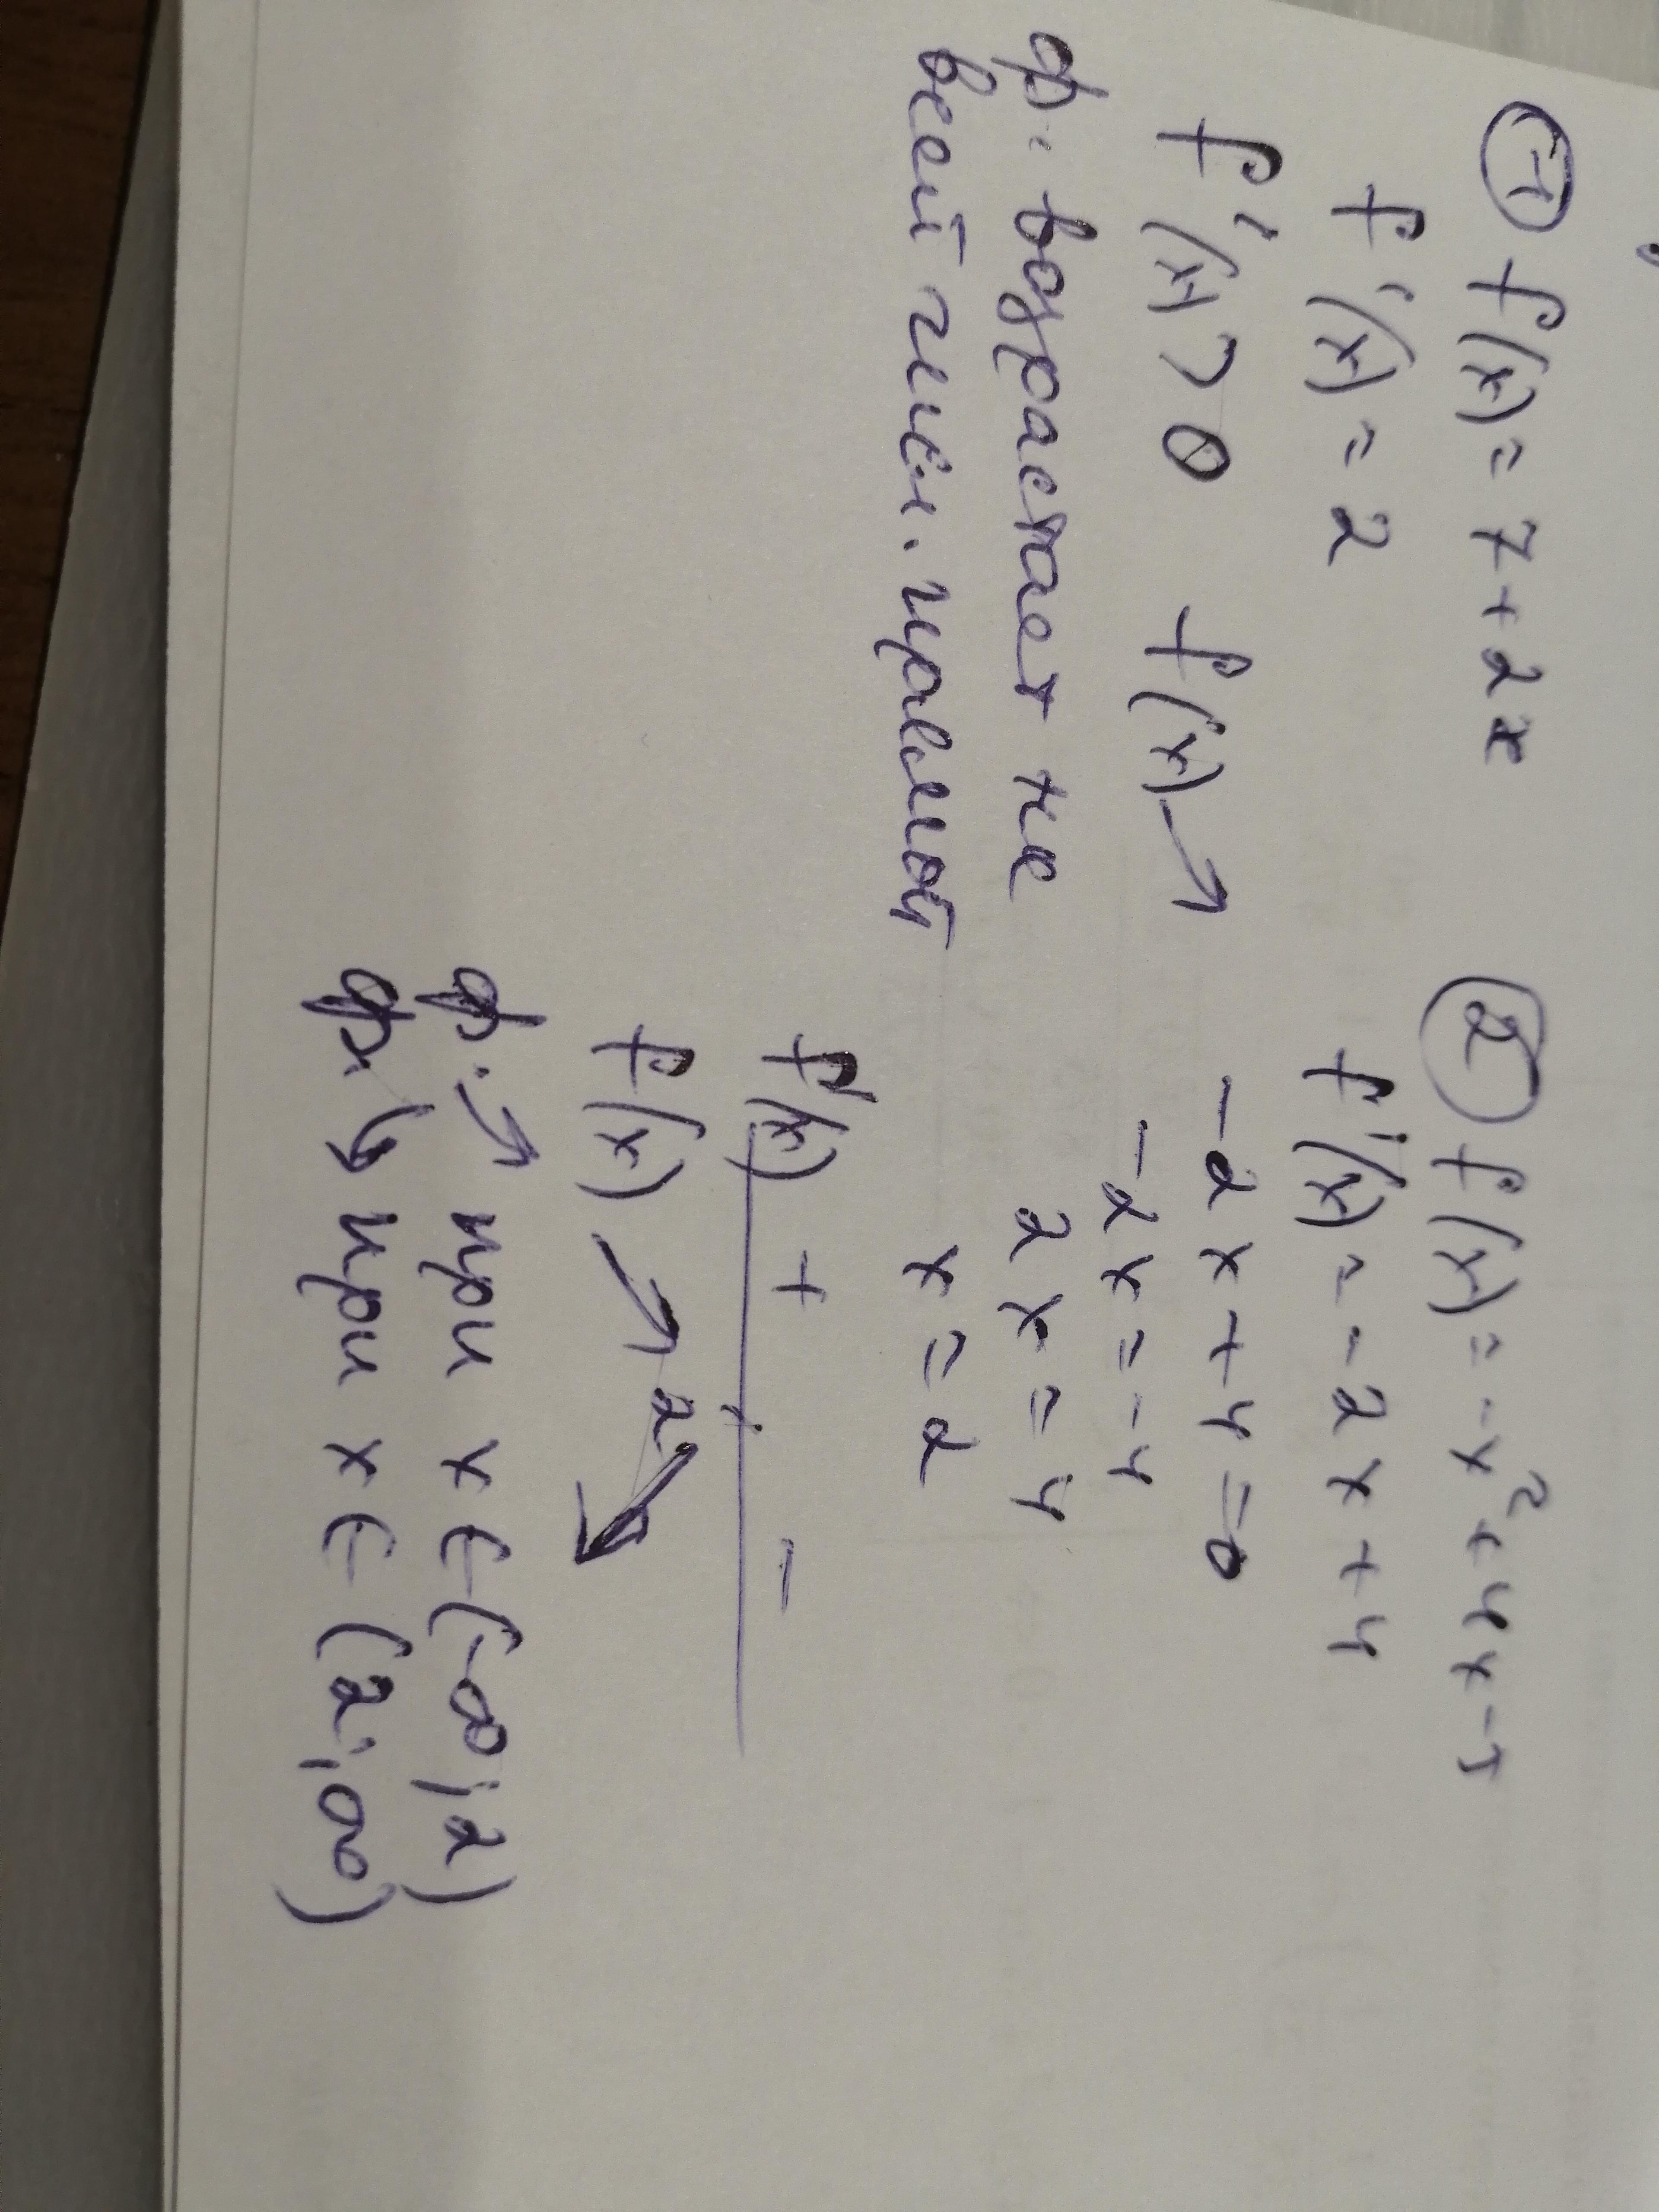 ① f(x) = 7 + 2x
f'(x) = 2
f'(x) > 0 f(x) ↗
ф. возрастает на
всей числ. прямой
② f(x) = -x² + 4x - 5
f'(x) = -2x + 4
-2x + 4 = 0
-2x = -4
2x = 4
x = 2
f'(x) + -
f(x) ↗ 2 ↘
ф. ↗ при x ∈ (-∞; 2)
ф. ↘ при x ∈ (2; ∞)